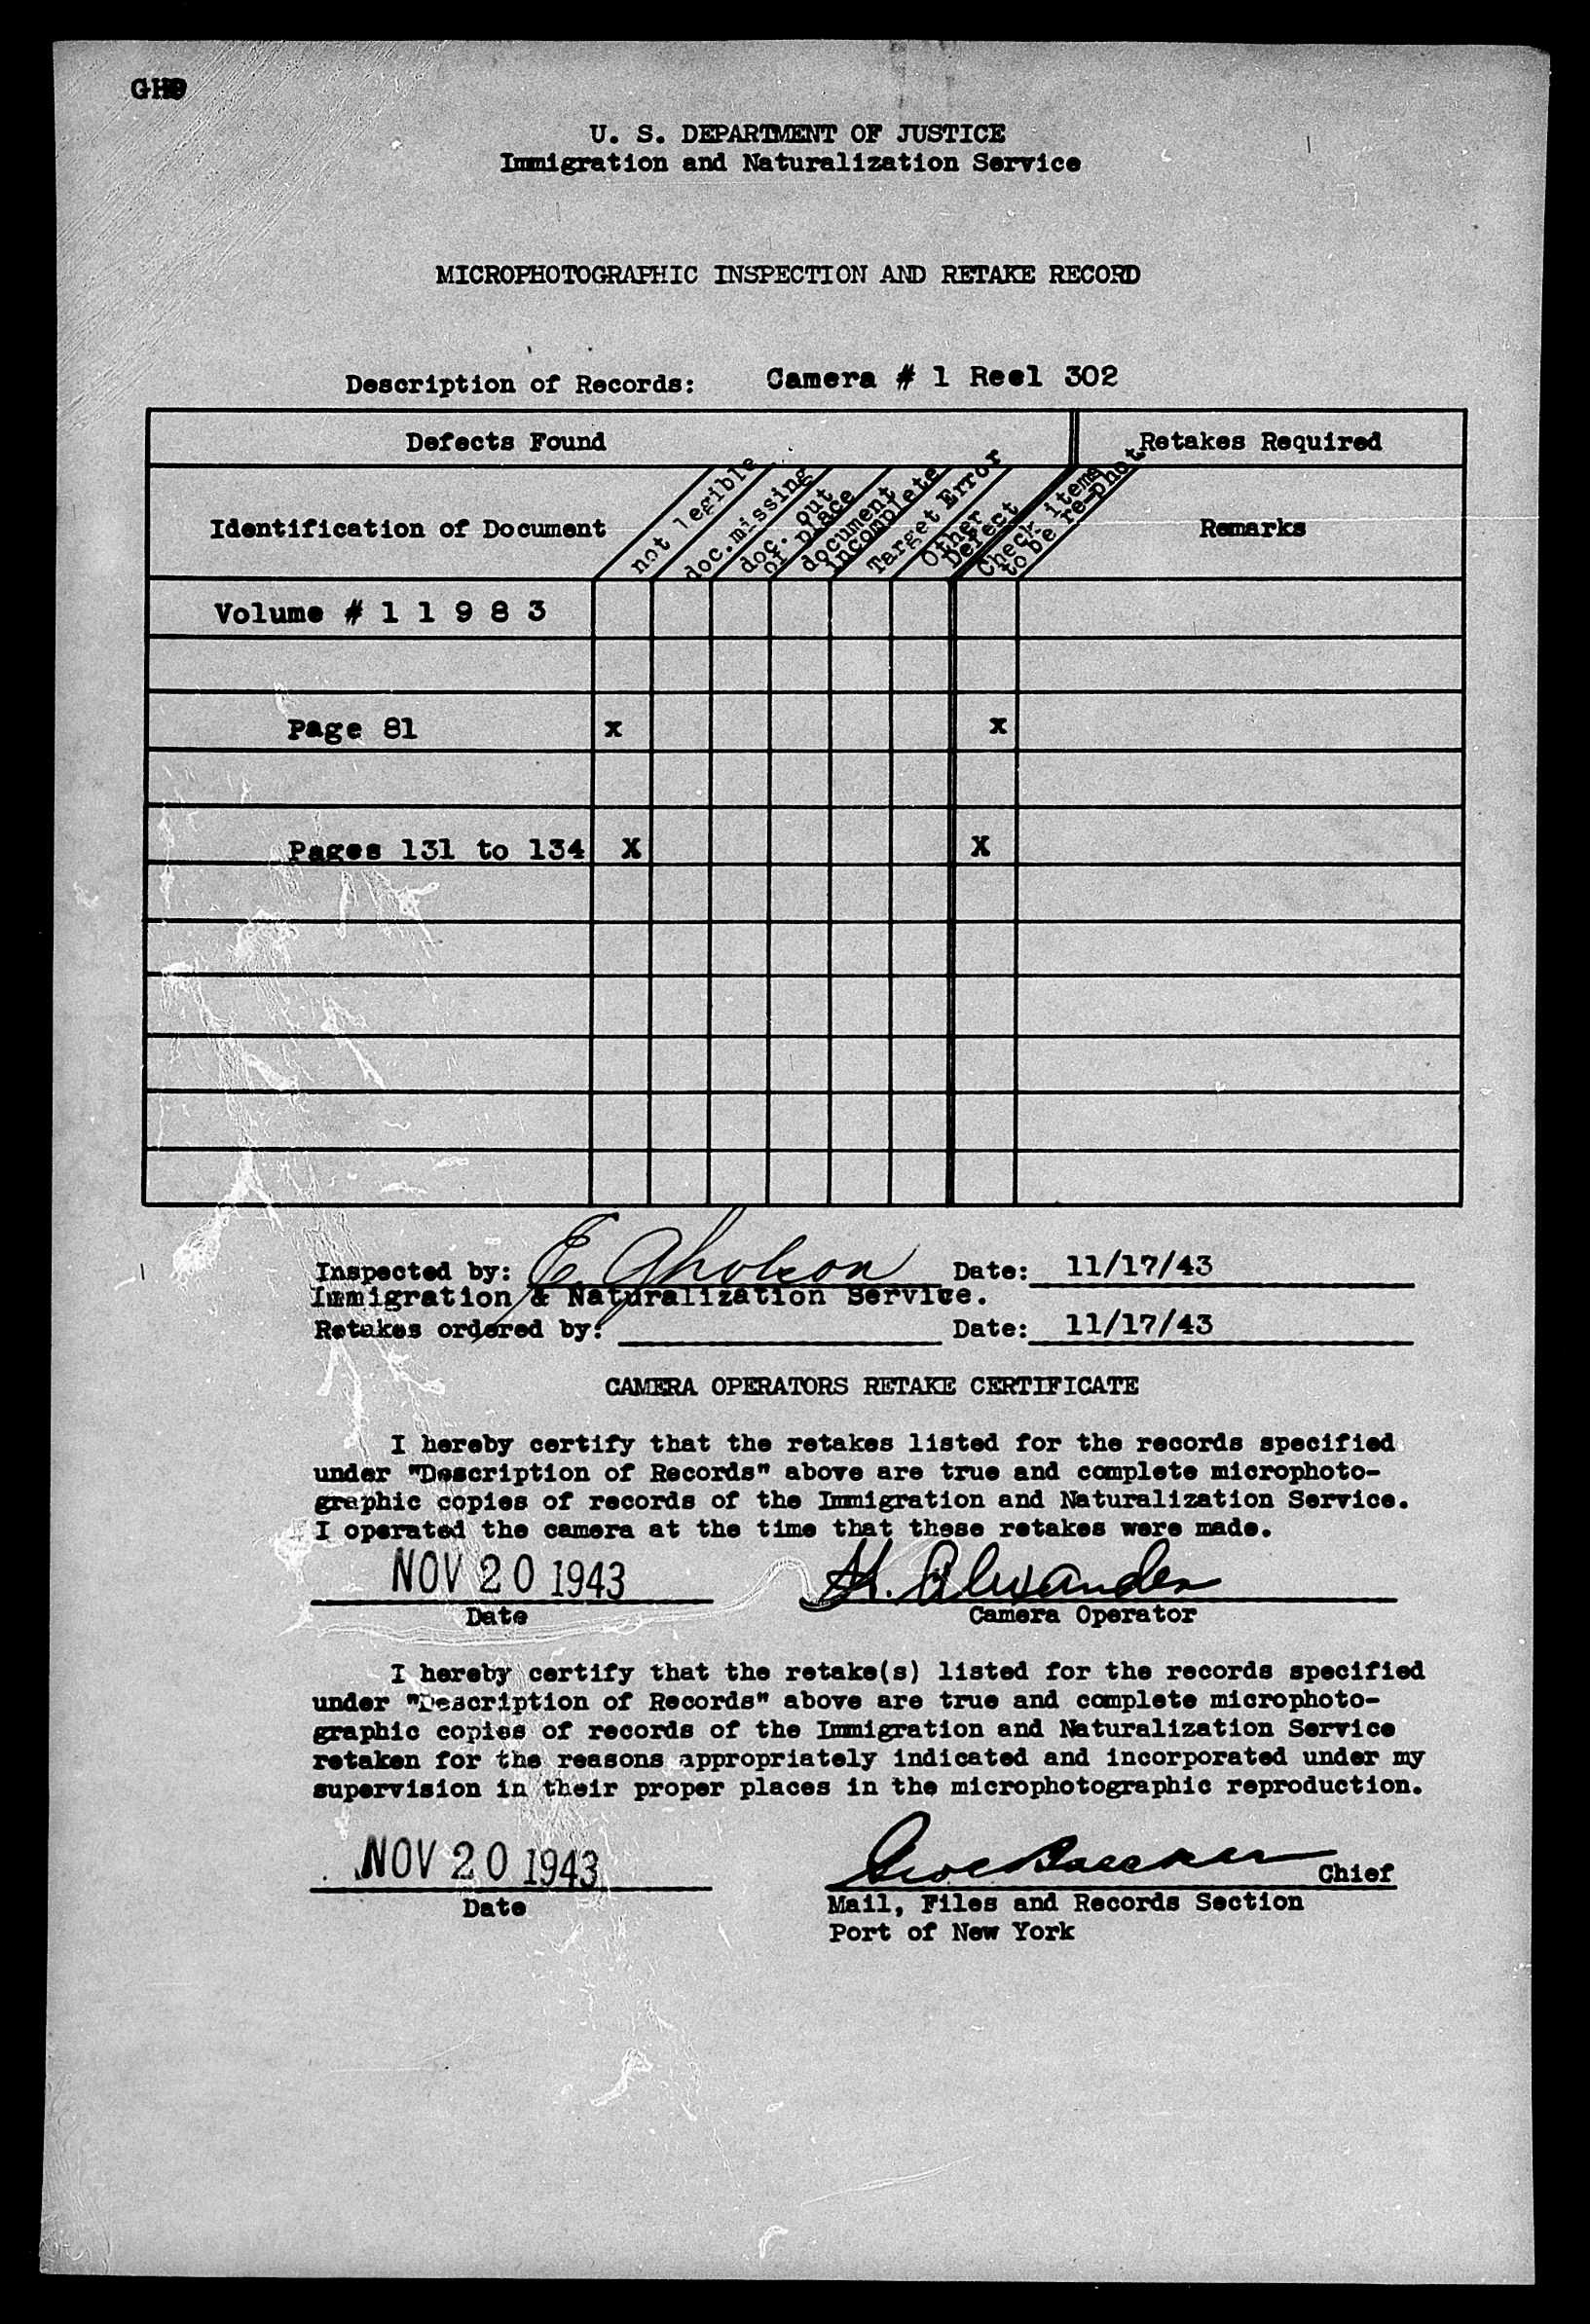 U. S. DEPARTMENT OF JUSTICE
Immigration and Naturalization Service
MICROPHOTOGRAPHIC INSPECTION AND RETAKE RECORD
Description of Records: Camera # 1 Reel 302
Defects Found
Retakes Required
Identification of Document
not legible
doc. missing
doc. out
of place
document
incomplete
Target Error
Other
Defect
Check items
to be re-phot.
Remarks
Volume # 1 1 9 8 3
Page 81 x x
Pages 131 to 134 X X
Inspected by: E. Gholson Date: 11/17/43
Immigration & Naturalization Service.
Retakes ordered by: Date: 11/17/43
CAMERA OPERATORS RETAKE CERTIFICATE
I hereby certify that the retakes listed for the records specified
under "Description of Records" above are true and complete microphoto-
graphic copies of records of the Immigration and Naturalization Service.
I operated the camera at the time that these retakes were made.
NOV 20 1943 H. Alexander
Date Camera Operator
I hereby certify that the retake(s) listed for the records specified
under "Description of Records" above are true and complete microphoto-
graphic copies of records of the Immigration and Naturalization Service
retaken for the reasons appropriately indicated and incorporated under my
supervision in their proper places in the microphotographic reproduction.
NOV 20 1943 Chief
Date Mail, Files and Records Section
Port of New York